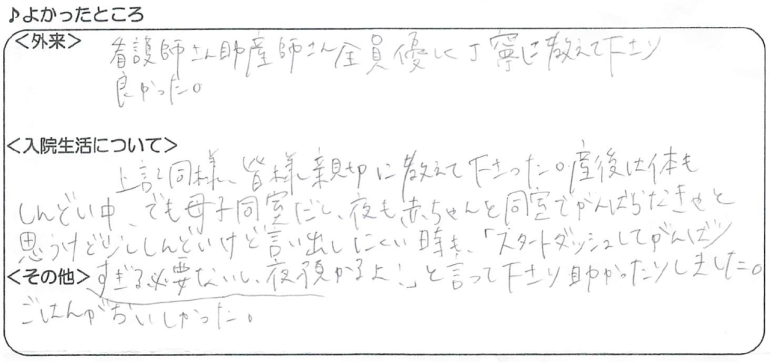 ♪よかったところ
<外来>
看護師さん助産師さん全員優しく丁寧に教えて下さり
良かった。
<入院生活について>
上記と同様、皆様親切に教えて下さった。産後は体も
しんどい中、でも母子同室だし、夜も赤ちゃんと同室でがんばらなきゃと
思うけど少ししんどいけど言い出しにくい時も、「スタートダッシュしてがんばり
<その他> すぎる必要ないし、夜預かるよ!」と言って下さり助かったりしました。
ごはんがおいしかった。